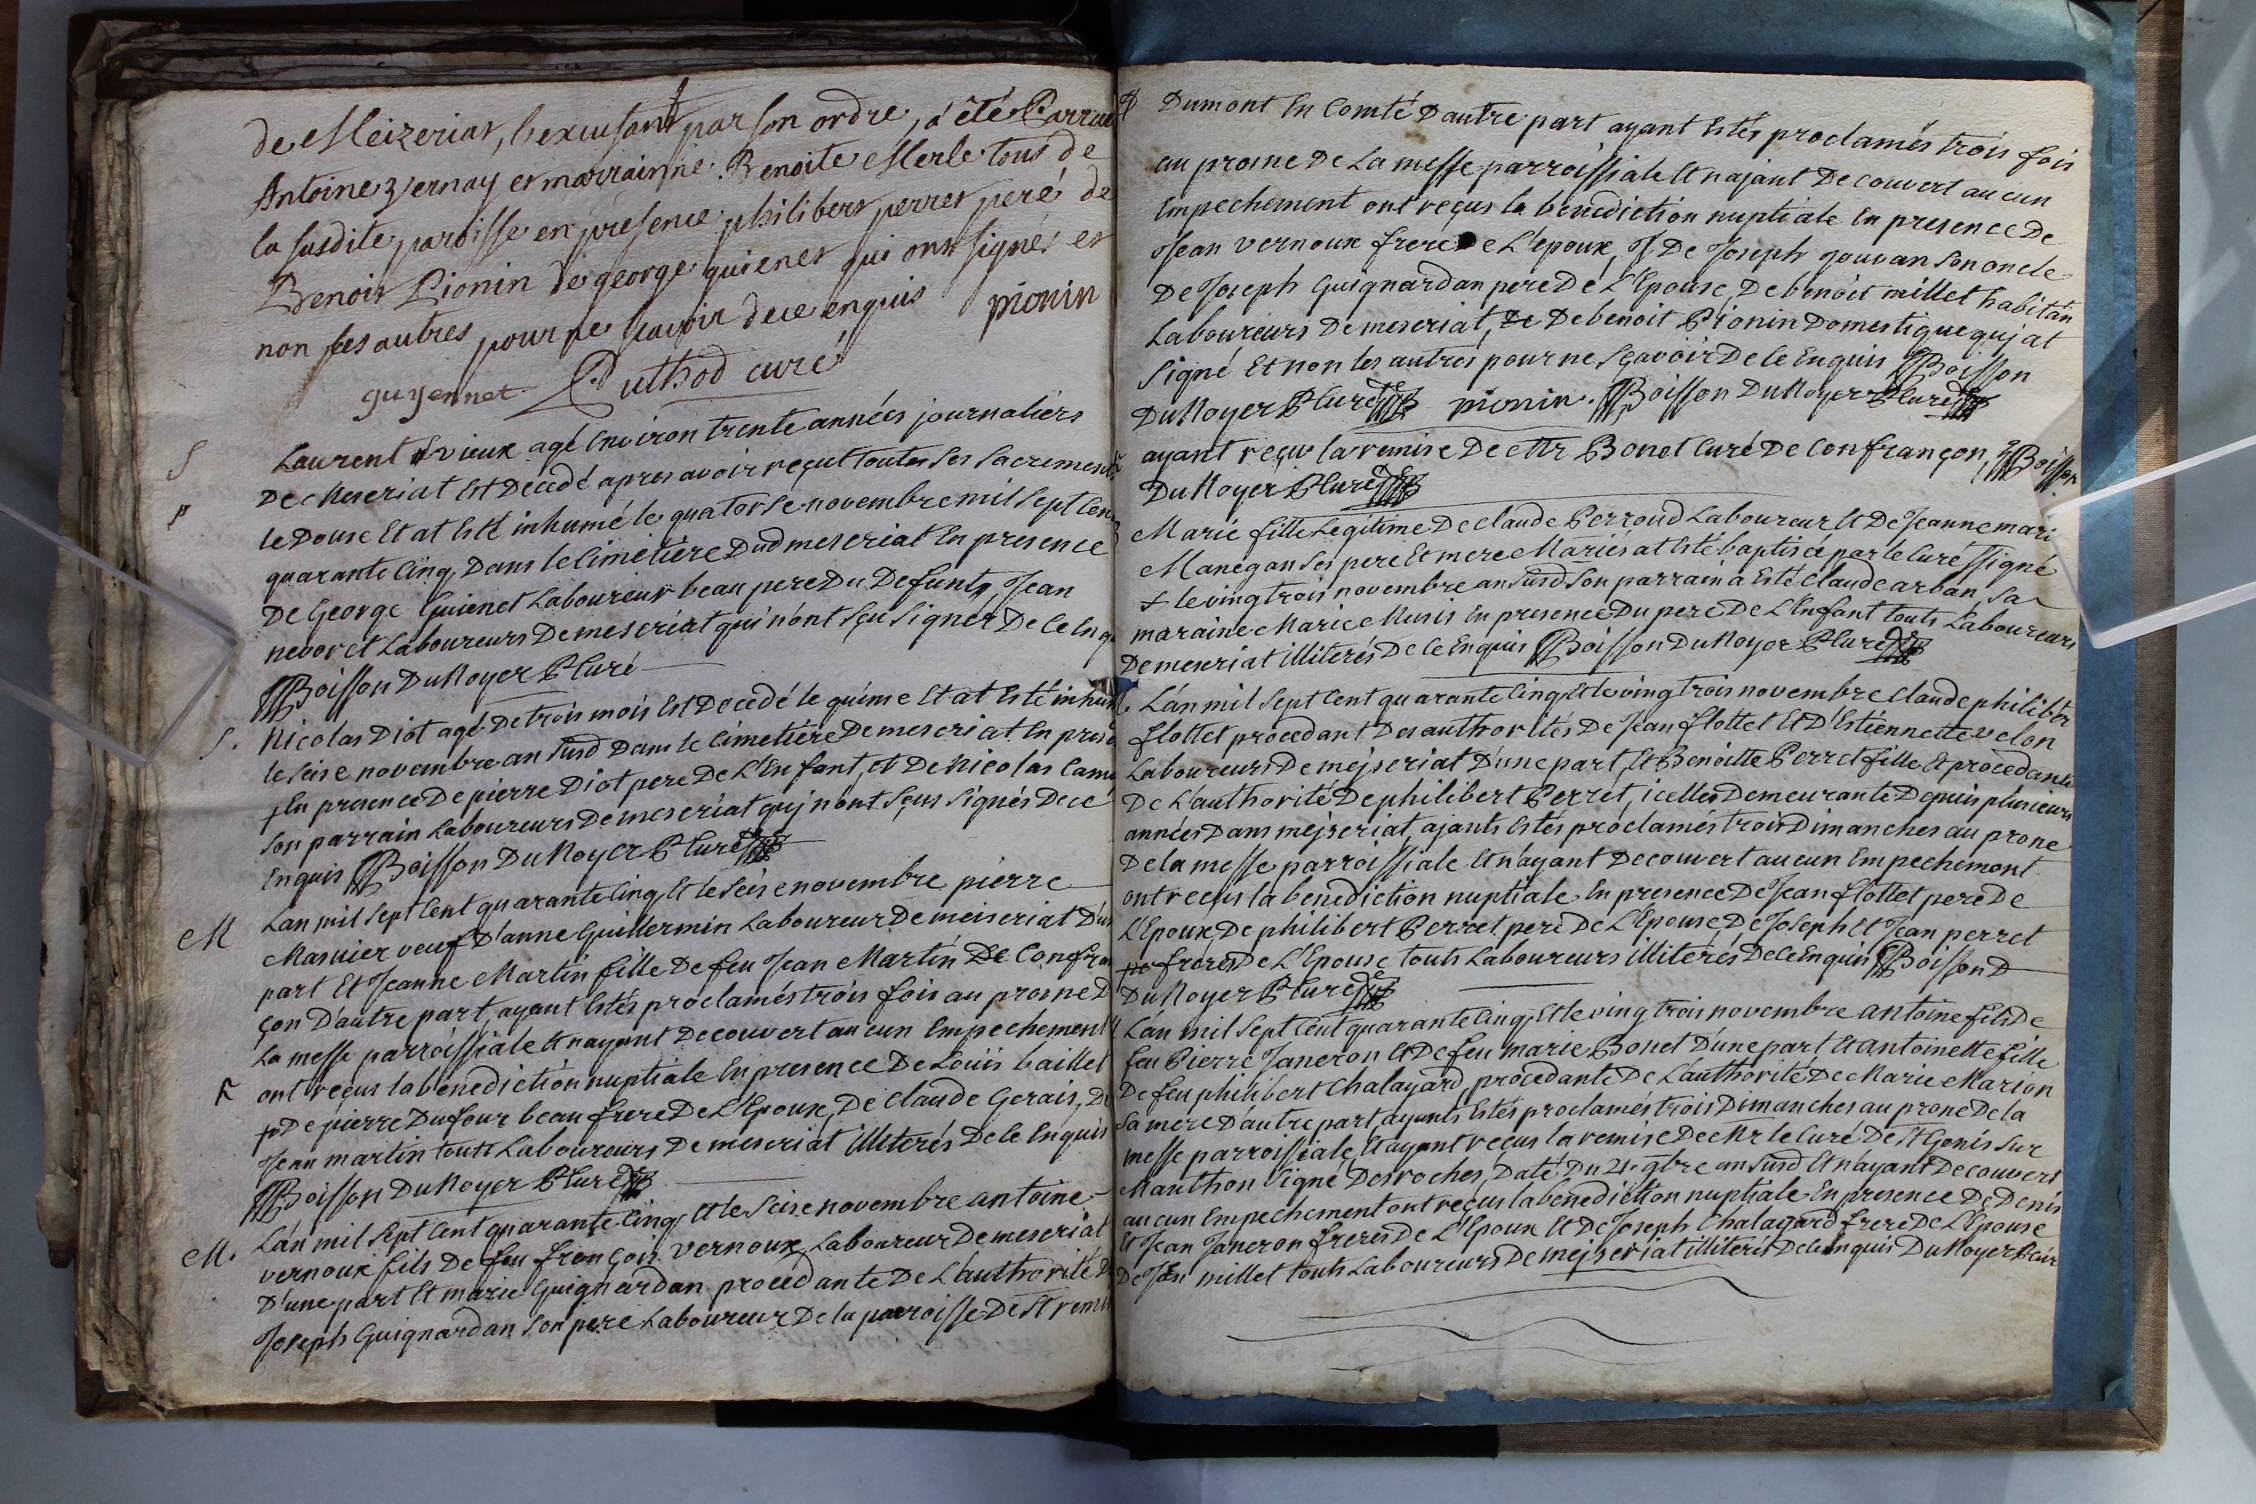 de Meizeriat, l'excusant par son ordre, a été Parrain
Antoine vernay et marrainne Benoite Merle tous de
la susdite paroisse en presence philibert perret peré de
Benoit Pionin de george guienet qui ont signés et
non les autres pour ne savoir de ce enquis pionin
guyennet Duthod curé
S Laurent vieux agé Environ trente années journaliers
De Meseriat Est Decedé apres avoir reçut toutes ses sacrements
p le Douse Et at Esté inhumé le quatorse novembre mil sept Cent
quarante Cinq, Dans le Cimetiére Dud meseriat En presence
De George Guienet Laboureur beau pere Du Defunt, Jean
nevoret Laboureurs De meseriat qui n'ont sçu signer De Ce Enquis
Boisson Du Noyer P Curé
S. Nicolas Diot agé De trois mois Est Decedé le quinse Et at Esté inhumé
le seise novembre an susd Dans le Cimetiére De meseriat En presen
En presence De pierre Diot pere De L'Enfant, et De Nicolas Camu
son parrain Laboureurs De meseriat quj n'ont sçus signés De cé
Enquis Boisson Du Noyer P Curé
Lan mil sept Cent quarante Cinq Et le seise novembre pierre
M Masnier veuf D'anne Guillermin Laboureur De meiseriat D'une
part Et Jeanne Martin fille De feu Jean Martin De Confran
çon D'autre part, ayant Estés proclamés trois fois au prosne De
La messe parroissiale Et nayant Decouvert aucun Empechement
ont reçus la benediction nuptiale En presence De Louis baillet
De pierre Dufour beau frere De L'Epoux, De Claude Gerais, De
Jean martin touts Laboureurs De meseriat illiterés De Ce Enquis
Boisson Du Noyer P Curé
M. L'an mil sept Cent quarante Cinq Et le seise novembre antoine
vernoux fils De feu françois vernoux Laboureur De meseriat
D'une part Et marie Guignardan procedante De L'authorité De
Joseph Guignardan son pere Laboureur De la parroisse De St remy
Dumont En Comté D'autre part ayant Estés proclamés trois fois
au prosne De La messe parroissiale Et najant Decouvert aucun
Empechement ont reçus la bénédiction nuptiale En presence De
Jean vernoux frere De L'epoux, Et De Joseph gouvan son oncle
De Joseph Guignardan pere De L'Epouse, De benoit millet habitan
Laboureurs De meseriat, De De benoit Pionin Domestique quj at
signé Et non les autres pour ne sçavoir De Ce Enquis Boisson
Du Noyer P Curé pionin. Boisson Du Noyer P Curé
ayant reçu la remise De Mr Bonet Curé De Confrançon, Boisson
Du Noyer P Curé
Marie fille Legitime De Claude Perroud Laboureur Et De Jeanne marie
Manegan ses pere Et mere Mariés at Esté baptisée par le Curé ssigné
le vingtrois novembre an susd son parrain a Esté Claude arban, sa
maraine Marie Musis En presence Du pere De L'Enfant touts Laboureurs
De meseriat illiterés De Ce Enquis Boisson Du Noyer P Curé
L'an mil sept Cent quarante Cinq Et le vingtrois novembre Claude philibert
flottet procedant Des authorités De Jean flottet Et D'Estiennette velon
Laboureurs De mejseriat D'une part, Et Benoitte Perret fille Et procedante
De L'authorité De philibert Perret, icelles Demeurante Depuis plusieurs
années Dans mejseriat, ajants Estés proclamés trois Dimanches au prone
De la messe parroissiale Et n'ayant Decouvert aucun Empechement
ont reçus la benediction nuptiale En presence De Jean flottet pere De
L'Epoux, De philibert Perret pere De L'Epouse, De Joseph Et Jean perret
freres De L'Epouse touts Laboureurs illiterés De Ce Enquis Boisson D
Du Noyer P Curé
L'an mil sept Cent quarante Cinq Et le vingtrois novembre antoine fils De
feu Pierre Janeron Et De feu marie Bonet D'une part Et antoinette fille
De feu philibert Chalayard, procedante De L'authorité De Marie Marion
sa mere D'autre part, ayants Estés proclamés trois Dimanches au prone De la
messe parroissiale, Et ayant reçus la remise De Mr le Curé De St Genis sur
Manthon signé Desroches, Daté Du 21. 9bre an susd Et n'ayant Decouvert
aucun Empechement ont reçus la bénédiction nuptiale En presence De Denis
Et Jean Janeron freres De L'Epoux Et De Joseph Chalayard frere De L'Epouse
De Jean millet touts Laboureurs De mejseriat illiterés De Ce Enquis Du Noyer P Curé